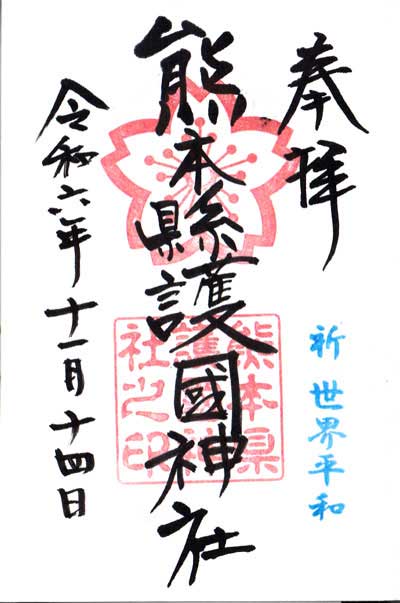 奉拝
祈 世界平和
熊本縣護國神社
熊本県
護國神
社之印
令和六年 十一月 十四日